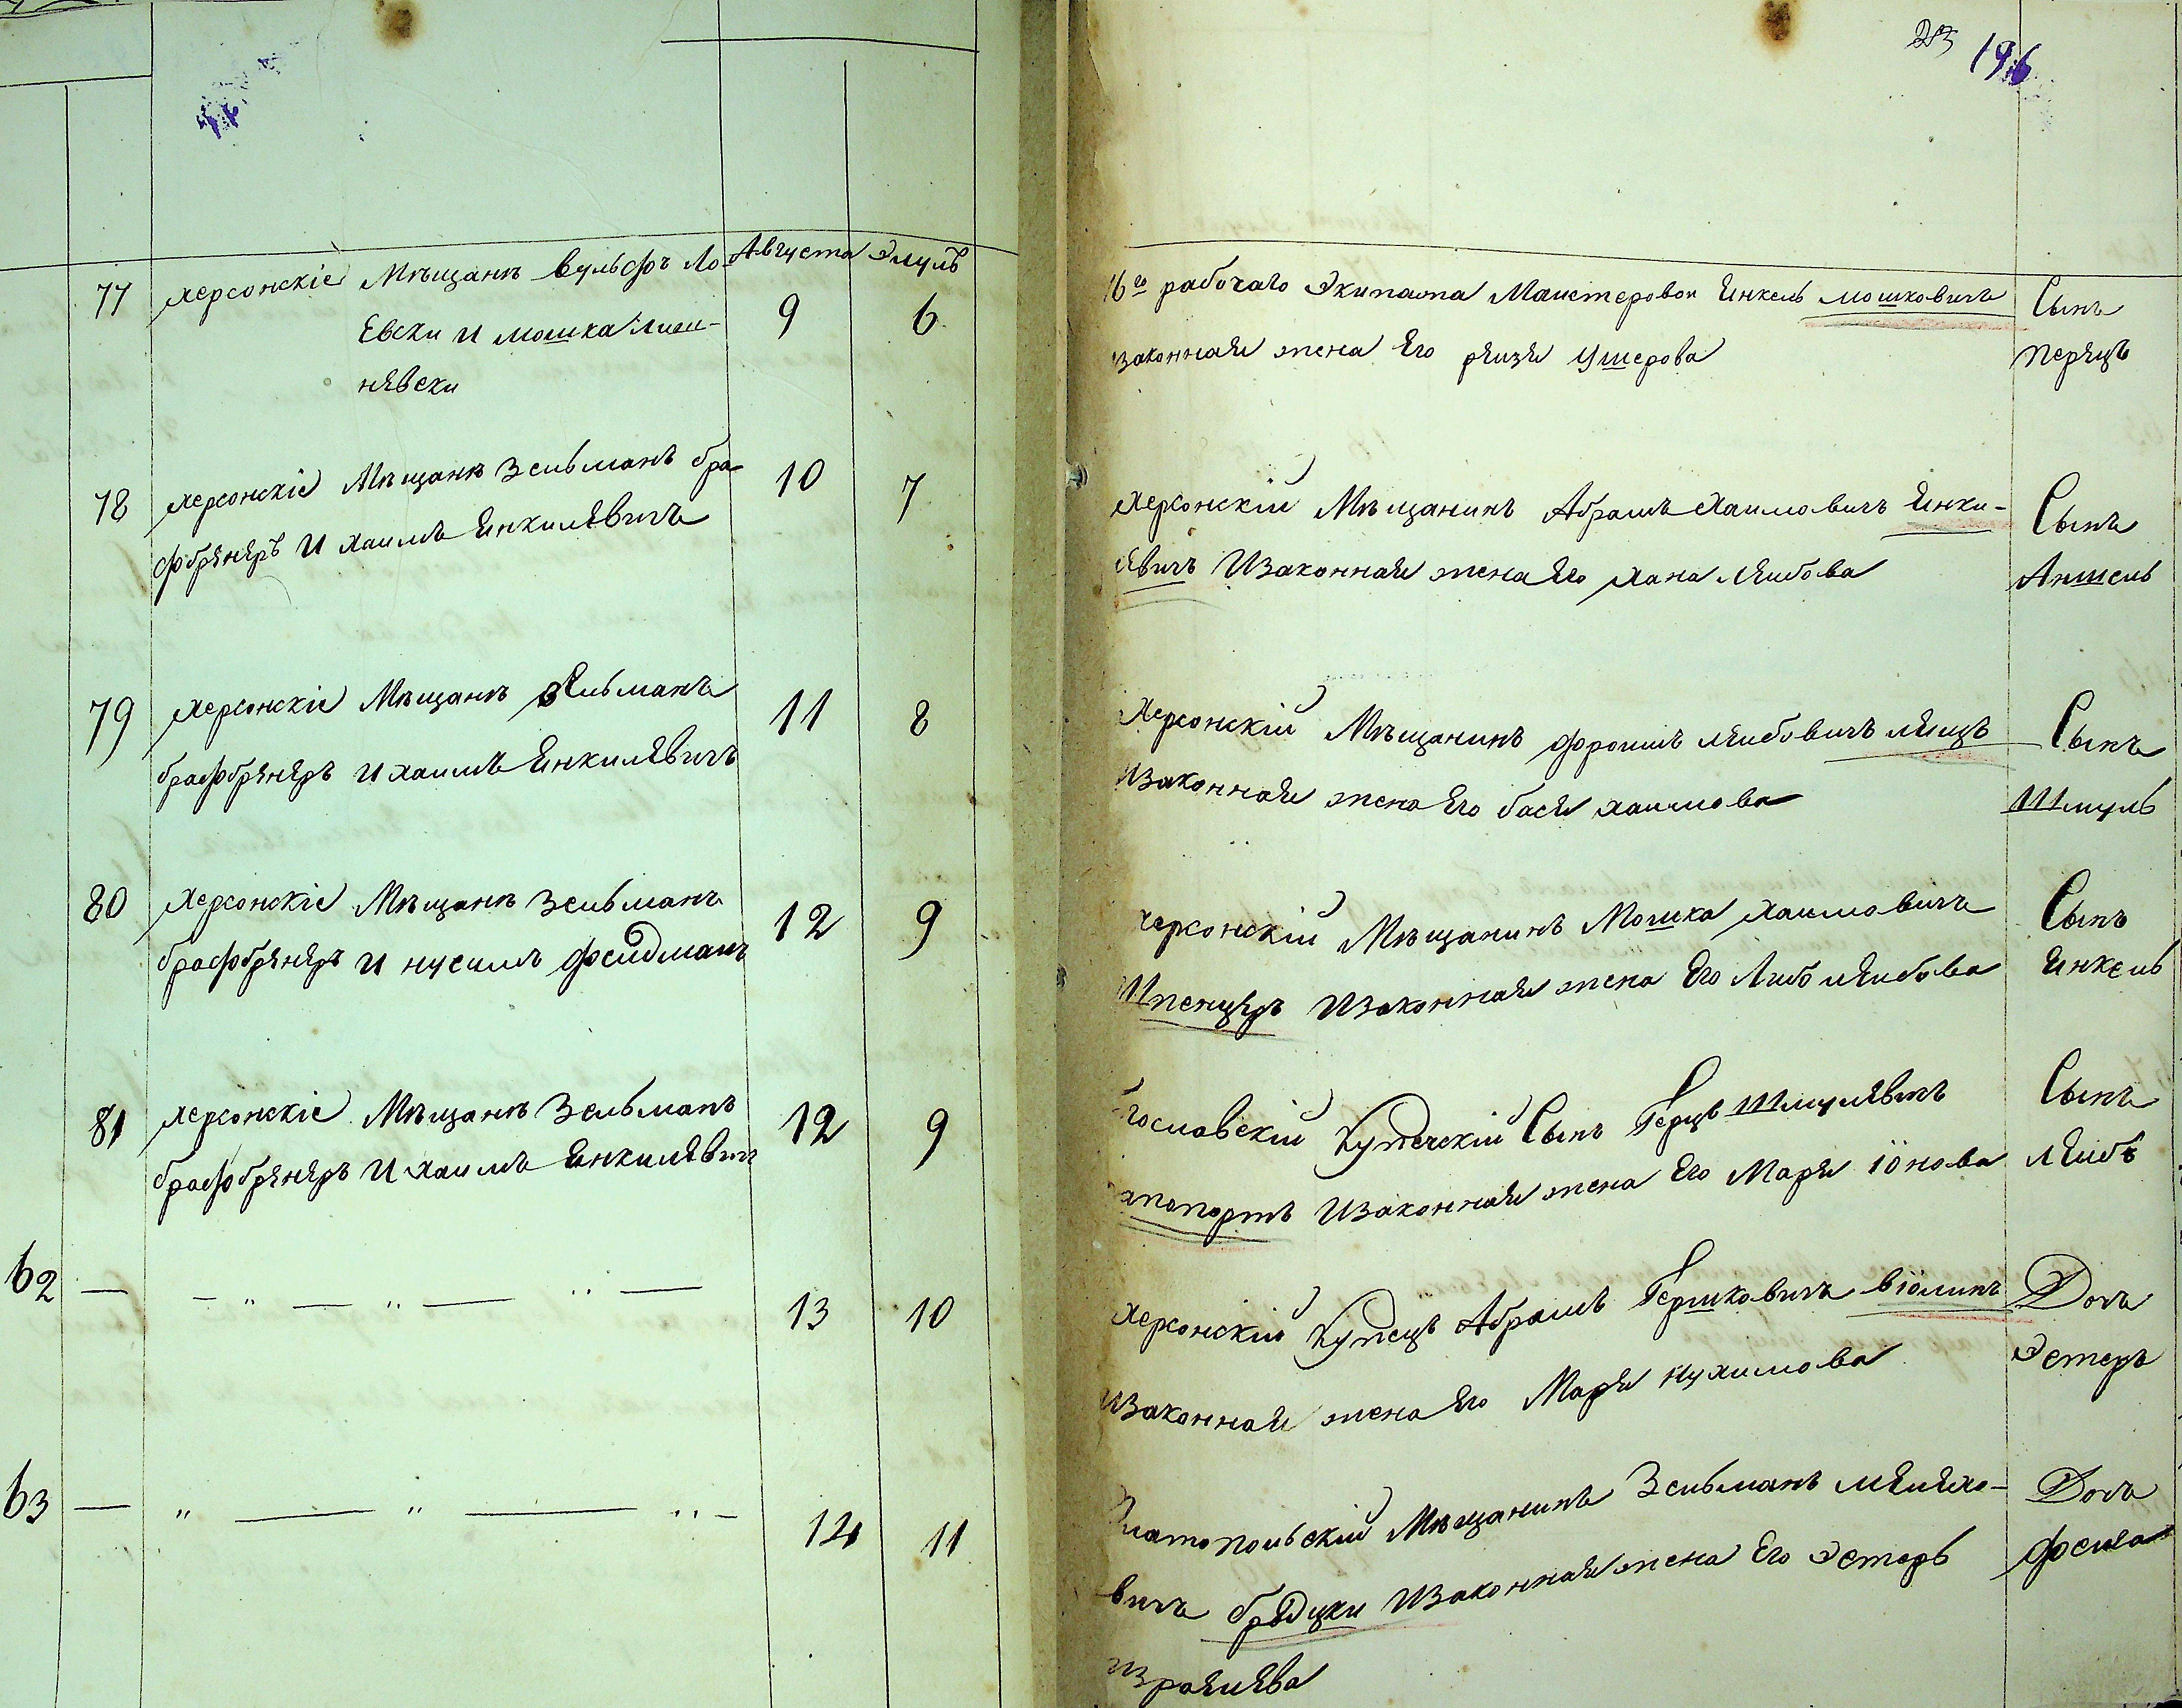 213 196
Августа Элулъ
77 херсонскіе Мѣщанѣ Вульфъ Ло-
Евски и мошка лиси-
нявски
9 6
16го рабочаго Экипажа Маистеровои Янкель мошковичъ
изаконная жена Его рейзя Ушерова
Сынъ
перецъ
78 херсонскіе Мѣщанѣ Зельманъ бра-
фбрэнэръ И хаимъ Янкилевичъ
10 7
херсонскій Мѣщанинъ Абрамъ Хаимовичъ Янки-
левичъ Изаконная жена Его хана Лейбова
Сынъ
Аншель
79 херсонскіе Мѣщанѣ Зельманъ
брафбрэнэръ И хаимъ Янкилевичъ
11 8
херсонскій Мѣщанинъ фроимъ лейбовичъ лейцъ
Изаконная жена Его бася хаимова
Сынъ
Шмуль
80 херсонскіе Мѣщанѣ Зельманъ
брафбрэнэръ И нусимъ фельдманъ
12 9
херсонскій Мѣщанинъ Мошка хаимовичъ
Шпенцеръ Изаконная жена Его Либа лейбова
Сынъ
Янкель
81 херсонскіе Мѣщанѣ Зельманъ
брафбрэнэръ И хаимъ Янкилевичъ
12 9
Купеческій Сынъ Герцъ Шмулевичъ
апопортъ Изаконная жена Его Маря іонова
Сынъ
лейбъ
62 — — „ — „ — „ —
13 10
херсонскій Купецъ Абрамъ Гершковичъ віолинъ
изаконная жена Его Маря нухимова
Дочь
Эстеръ
63 — „ — „ — „ —
14 11
Златопольскій Мѣщанинъ Зельманъ мейлехо-
вичъ бродцки Изаконная жена Его Эстеръ
израилева
Дочь
фейга